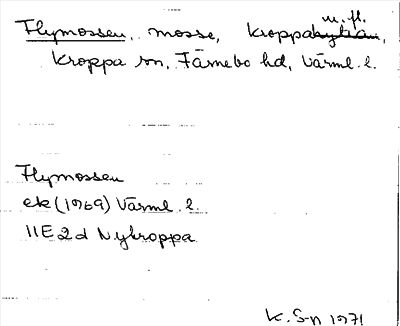 Flymossen, mosse, Kroppa m. fl.
Kroppa sn, Färnebo hd, Värml. l.
Flymossen
ek (1969) Värml. l.
11E2d Nykroppa
K. S-n 1971